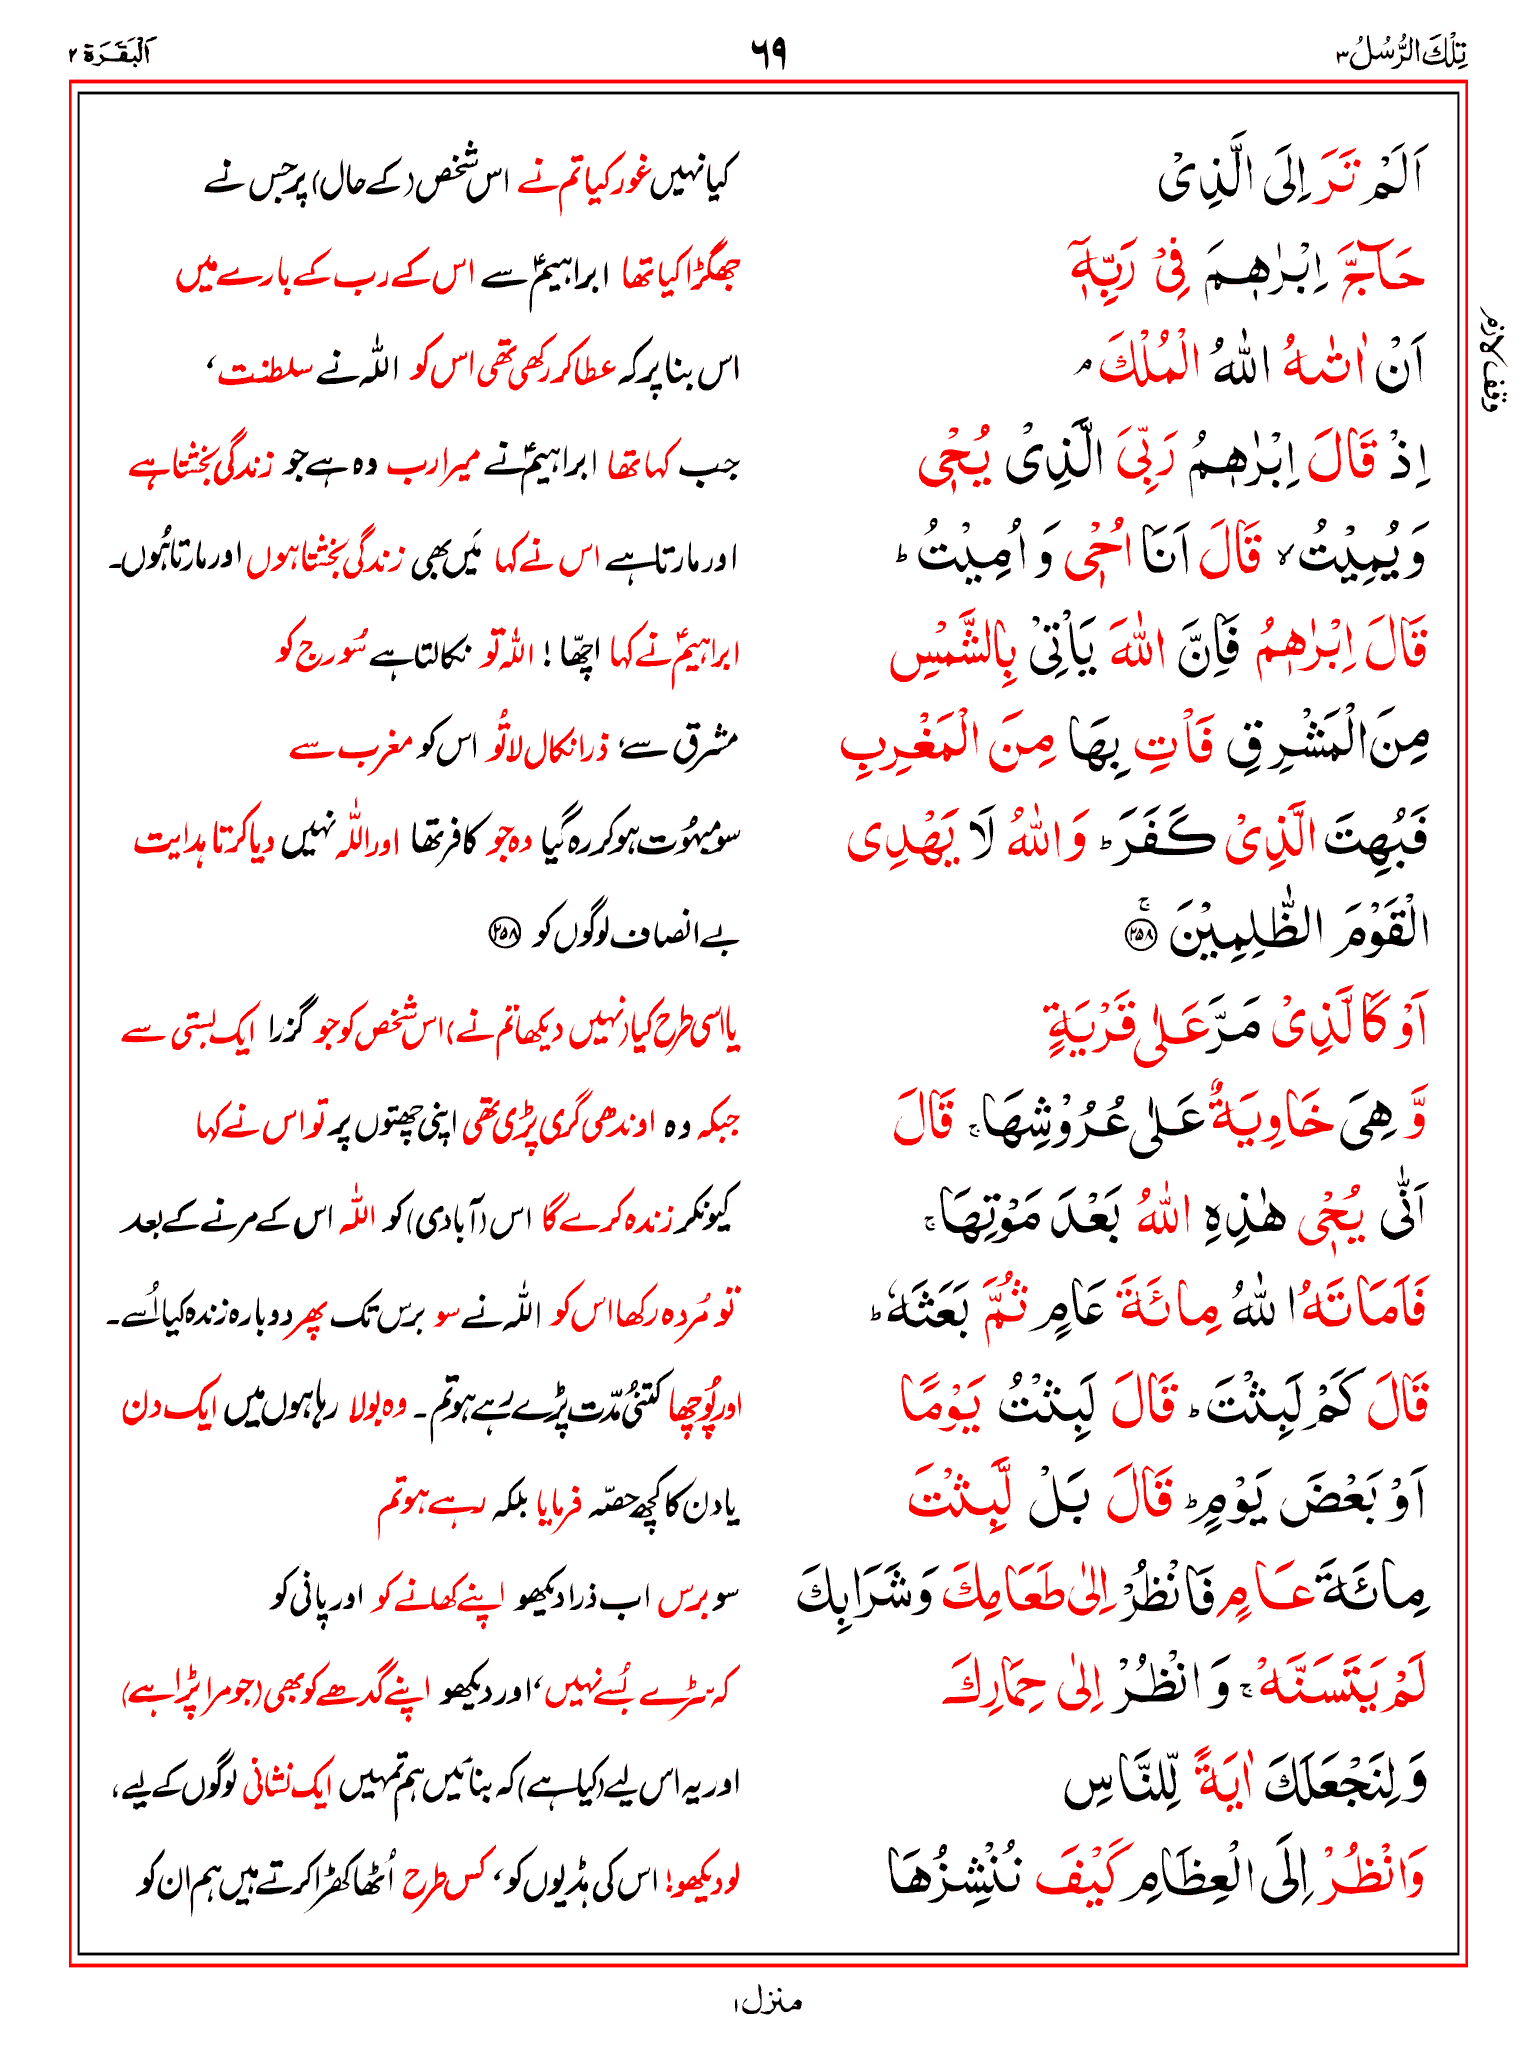 تِلْكَ الرُّسُلُ ٣
٦٩
اَلْبَقَرَة ٢
اَلَمْ تَرَ اِلَى الَّذِىْ
کیا نہیں غور کیا تم نے اس شخص (کے حال) پر جس نے
حَآجَّ اِبْرٰهٖمَ فِىْ رَبِّهٖۤ
جھگڑا کیا تھا ابراہیمؑ سے اس کے رب کے بارے میں
اَنْ اٰتٰىهُ اللّٰهُ الْمُلْكَ ۘ
اس بنا پر کہ عطا کر رکھی تھی اس کو اللہ نے سلطنت،
وقف لازم
اِذْ قَالَ اِبْرٰهٖمُ رَبِّىَ الَّذِىْ يُحْىٖ
جب کہا تھا ابراہیمؑ نے میرا رب وہ ہے جو زندگی بخشتا ہے
وَيُمِيْتُ ۙ قَالَ اَنَا اُحْىٖ وَاُمِيْتُ ؕ
اور مارتا ہے اس نے کہا مَیں بھی زندگی بخشتا ہوں اور مارتا ہُوں۔
قَالَ اِبْرٰهٖمُ فَاِنَّ اللّٰهَ يَاْتِىْ بِالشَّمْسِ
ابراہیمؑ نے کہا اچھّا! اللہ تو نکالتا ہے سُورج کو
مِنَ الْمَشْرِقِ فَاْتِ بِهَا مِنَ الْمَغْرِبِ
مشرق سے، ذرا نکال لا تُو اس کو مغرب سے
فَبُهِتَ الَّذِىْ كَفَرَ ؕ وَاللّٰهُ لَا يَهْدِى
سو مبہُوت ہو کر رہ گیا وہ جو کافر تھا اور اللہ نہیں دیا کرتا ہدایت
الْقَوْمَ الظّٰلِمِيْنَ ۚ ‏﴿۲۵۸﴾
بے انصاف لوگوں کو ﴿۲۵۸﴾
اَوْ كَالَّذِىْ مَرَّ عَلٰى قَرْيَةٍ
یا اسی طرح کیا (نہیں دیکھا تم نے) اس شخص کو جو گزرا ایک بستی سے
وَّهِىَ خَاوِيَةٌ عَلٰى عُرُوْشِهَا ۚ قَالَ
جبکہ وہ اوندھی گری پڑی تھی اپنی چھتوں پر تو اس نے کہا
اَنّٰى يُحْىٖ هٰذِهِ اللّٰهُ بَعْدَ مَوْتِهَا ۚ
کیونکر زندہ کرے گا اس (آبادی) کو اللہ اس کے مرنے کے بعد
فَاَمَاتَهُ اللّٰهُ مِائَةَ عَامٍ ثُمَّ بَعَثَهٗ ؕ
تو مُردہ رکھا اس کو اللہ نے سو برس تک پھر دوبارہ زندہ کیا اُسے۔
قَالَ كَمْ لَبِثْتَ ؕ قَالَ لَبِثْتُ يَوْمًا
اور پُوچھا کتنی مُدّت پڑے رہے ہو تم۔ وہ بولا رہا ہوں میں ایک دن
اَوْ بَعْضَ يَوْمٍ ؕ قَالَ بَلْ لَّبِثْتَ
یا دن کا کچھ حصّہ فرمایا بلکہ رہے ہو تم
مِائَةَ عَامٍ فَانْظُرْ اِلٰى طَعَامِكَ وَشَرَابِكَ
سو برس اب ذرا دیکھو اپنے کھانے کو اور پانی کو
لَمْ يَتَسَنَّهْ ۚ وَانْظُرْ اِلٰى حِمَارِكَ
کہ سڑے بُسے نہیں، اور دیکھو اپنے گدھے کو بھی (جو مرا پڑا ہے)
وَلِنَجْعَلَكَ اٰيَةً لِّلنَّاسِ
اور یہ اس لیے (کیا ہے) کہ بنائیں ہم تمہیں ایک نشانی لوگوں کے لیے،
وَانْظُرْ اِلَى الْعِظَامِ كَيْفَ نُنْشِزُهَا
لو دیکھو! اس کی ہڈیوں کو، کس طرح اُٹھا کھڑا کرتے ہیں ہم ان کو
منزل ١